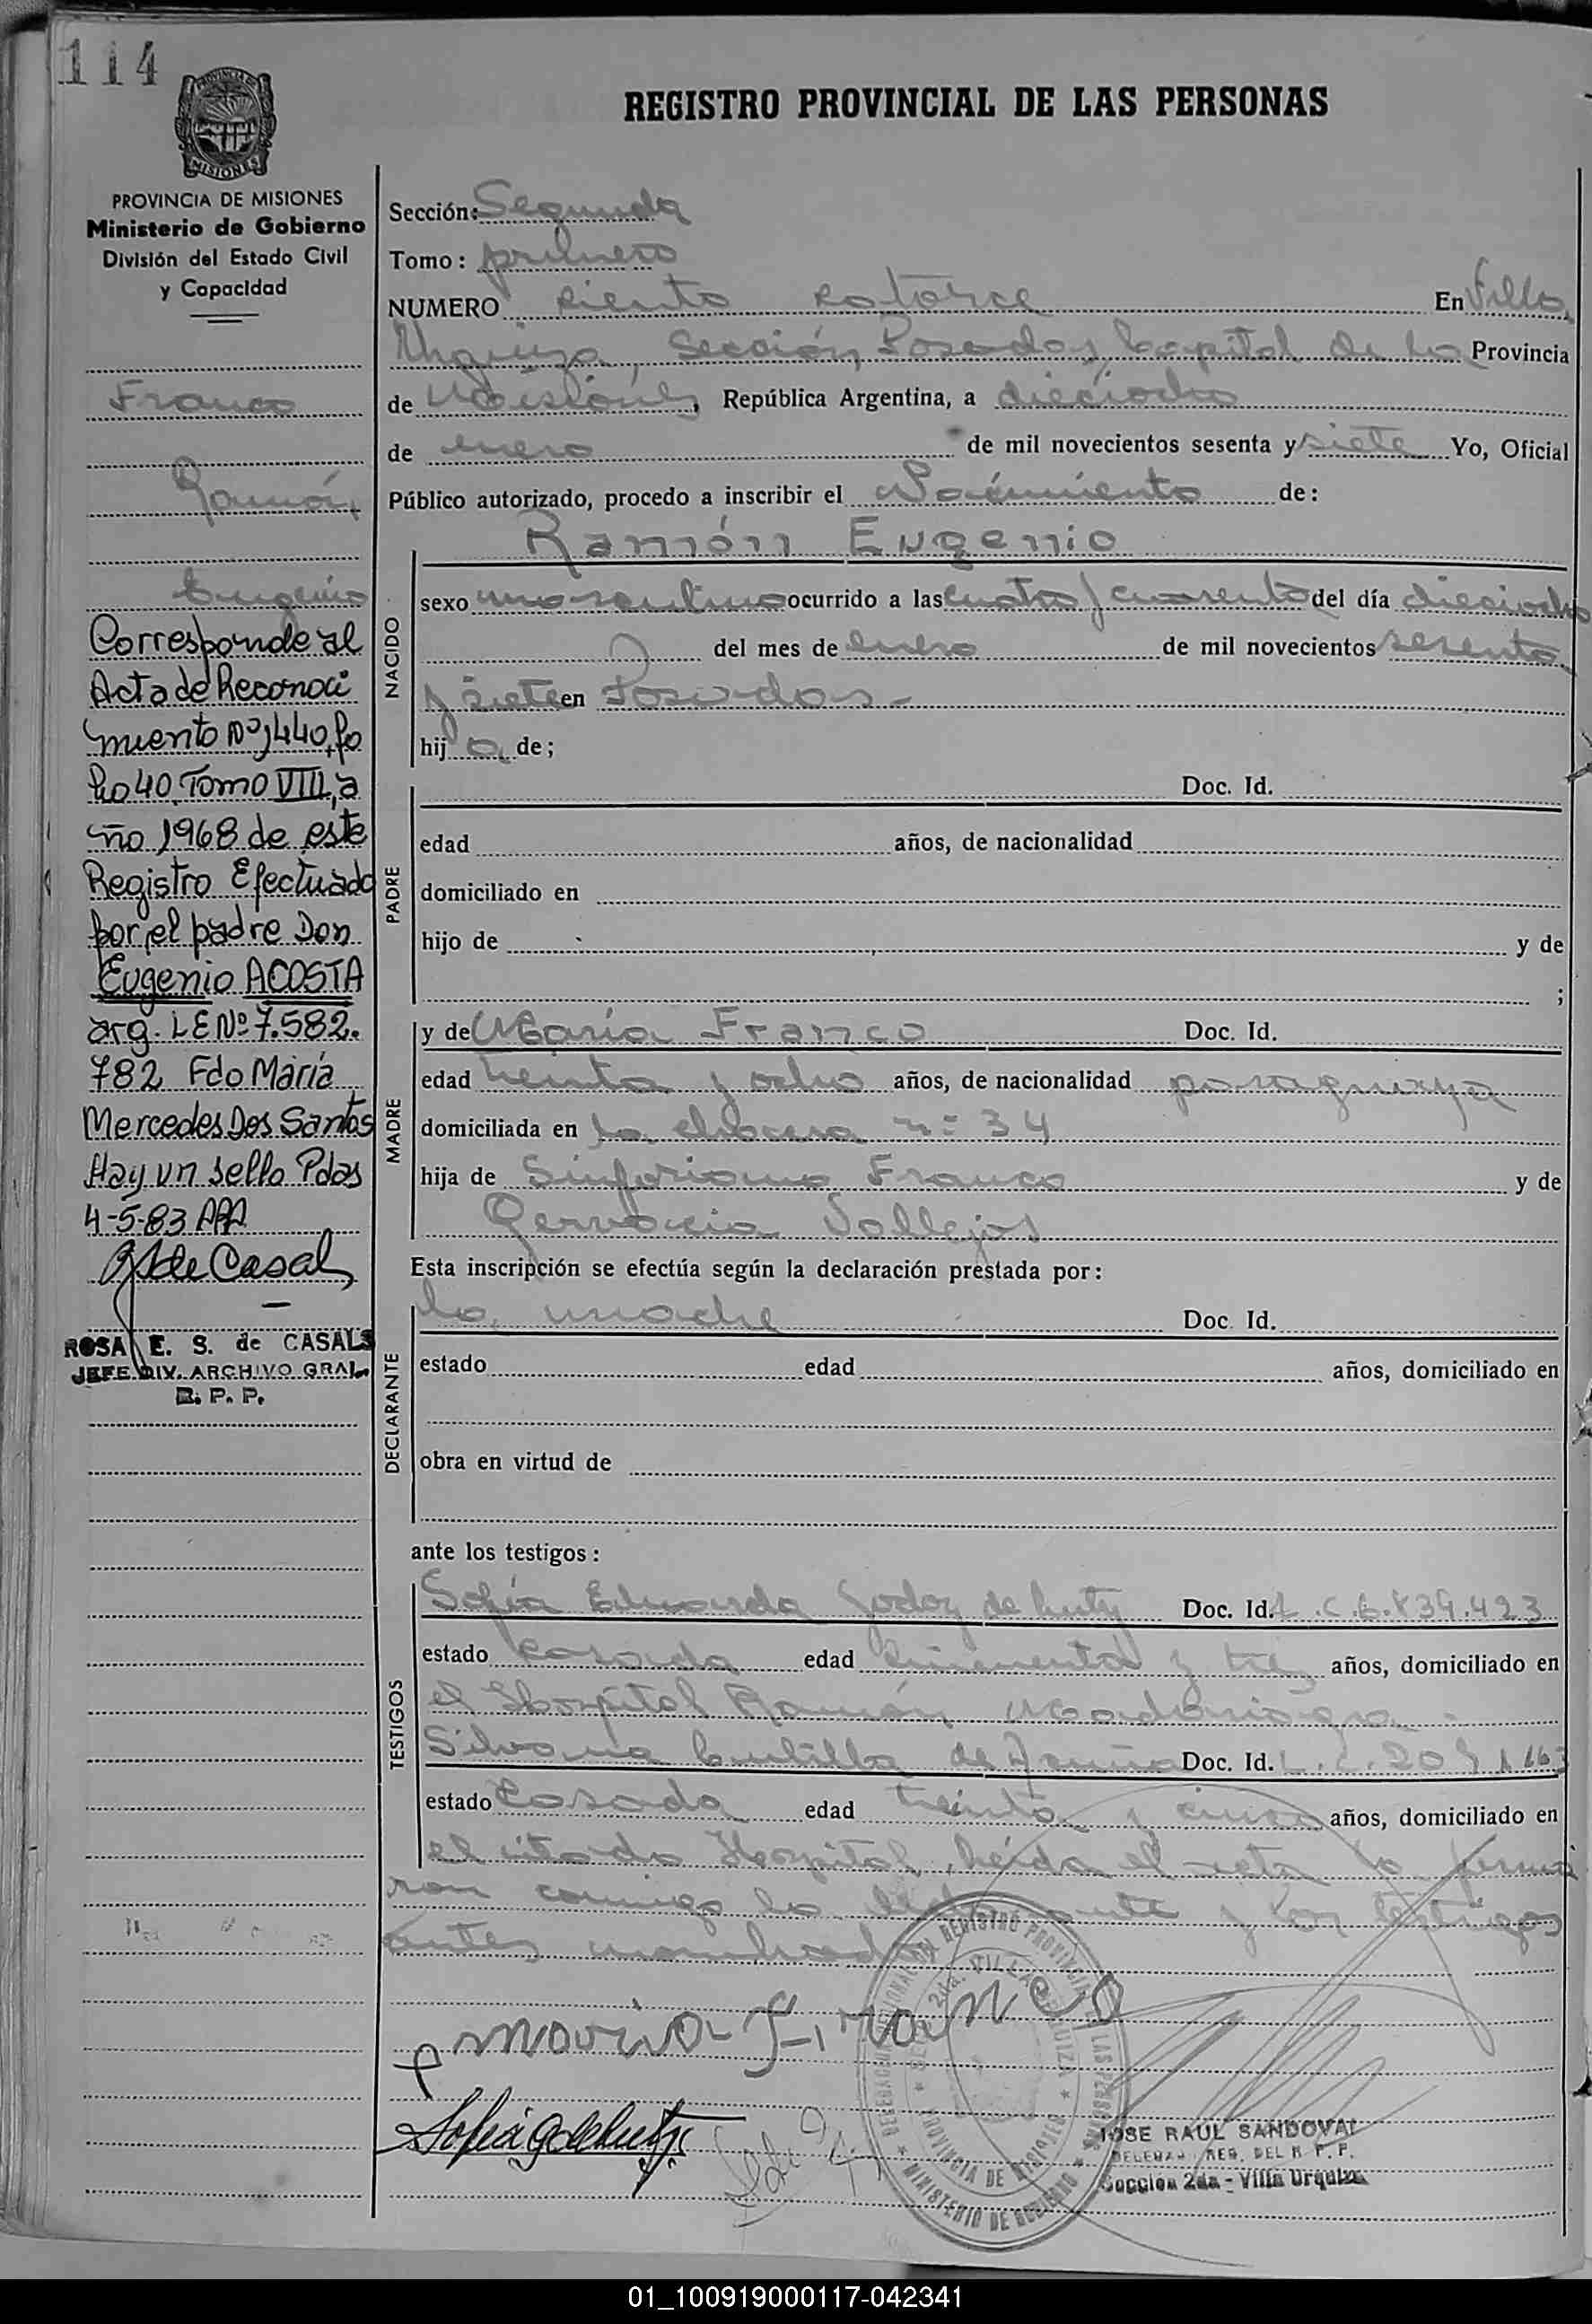 114
PROVINCIA DE MISIONES
MISIONES
PROVINCIA DE MISIONES
Ministerio de Gobierno
División del Estado Civil
y Capacidad
Franco
Ramón
Eugenio
Corresponde al
Acta de Reconoci
miento Nº 1440, fo
lio 40 Tomo VIII, a
ño 1968 de este
Registro Efectuado
por el padre Don
Eugenio ACOSTA
arg. LE Nº 7.582.
782 Fdo María
Mercedes Dos Santos
Hay un sello Pdas
4-5-83
de Casals
ROSA E. S. de CASALS
JEFE DIV. ARCHIVO GRAL.
R. P. P.
REGISTRO PROVINCIAL DE LAS PERSONAS
Sección: Segunda
Tomo: primero
NUMERO ciento catorce En Villa
Urquiza, Sección, Posadas, Capital de la Provincia
de Misiones, República Argentina, a dieciocho
de enero de mil novecientos sesenta y siete Yo, Oficial
Público autorizado, procedo a inscribir el Nacimiento de:
Ramón Eugenio
NACIDO
sexo masculino ocurrido a las cuatro y cuarenta del día dieciocho
del mes de enero de mil novecientos sesenta
y siete en Posadas.-
hij o de;
PADRE
Doc. Id.
edad años, de nacionalidad
domiciliado en
hijo de y de
;
MADRE
y de María Franco Doc. Id.
edad treinta y ocho años, de nacionalidad paraguaya
domiciliada en la chacra nº 34
hija de Sinforiano Franco y de
Gervacia Vallejos
Esta inscripción se efectúa según la declaración prestada por:
DECLARANTE
la madre Doc. Id.
estado edad años, domiciliado en
obra en virtud de
ante los testigos:
TESTIGOS
Sofía Eduarda Godoy de Doc. Id. L.C. 6.839.423
estado casada edad cincuenta y tres años, domiciliado en
el Hospital Ramón Madariaga.-
Silvana de Doc. Id. L.C.
estado Casada edad treinta y cinco años, domiciliado en
el citado Hospital, leída el acta la firma
ron conmigo la declarante y los testigos
antes nombrados
maria Franco
JOSE RAUL SANDOVAL
DELEGADO REG. DEL R. P. P.
Sección 2da - Villa Urquiza
01_100919000117-042341